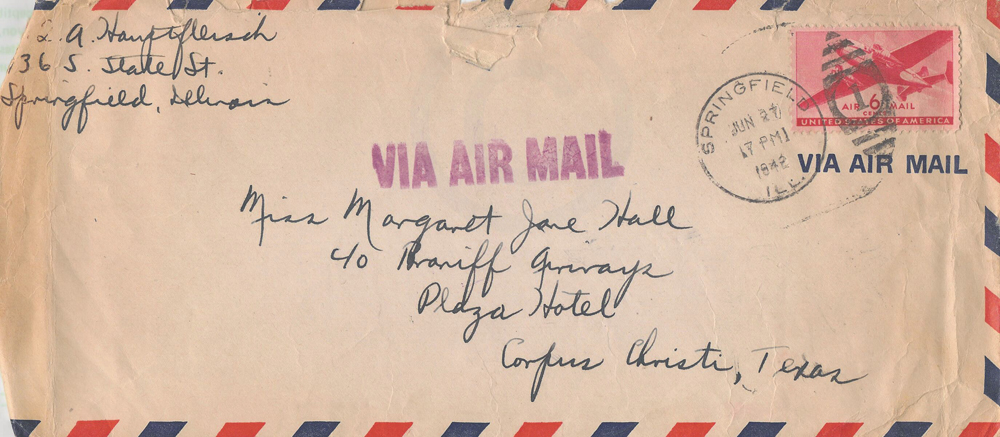 A. Hauptfleisch
36 S. State St.
Springfield, Illinois
AIR 6 MAIL
CENTS
UNITED STATES OF AMERICA
SPRINGFIELD
JUN 27
17 PM
1942
ILL.
VIA AIR MAIL
VIA AIR MAIL
Miss Margaret Jane Hall
c/o Braniff Airways
Plaza Hotel
Corpus Christi, Texas